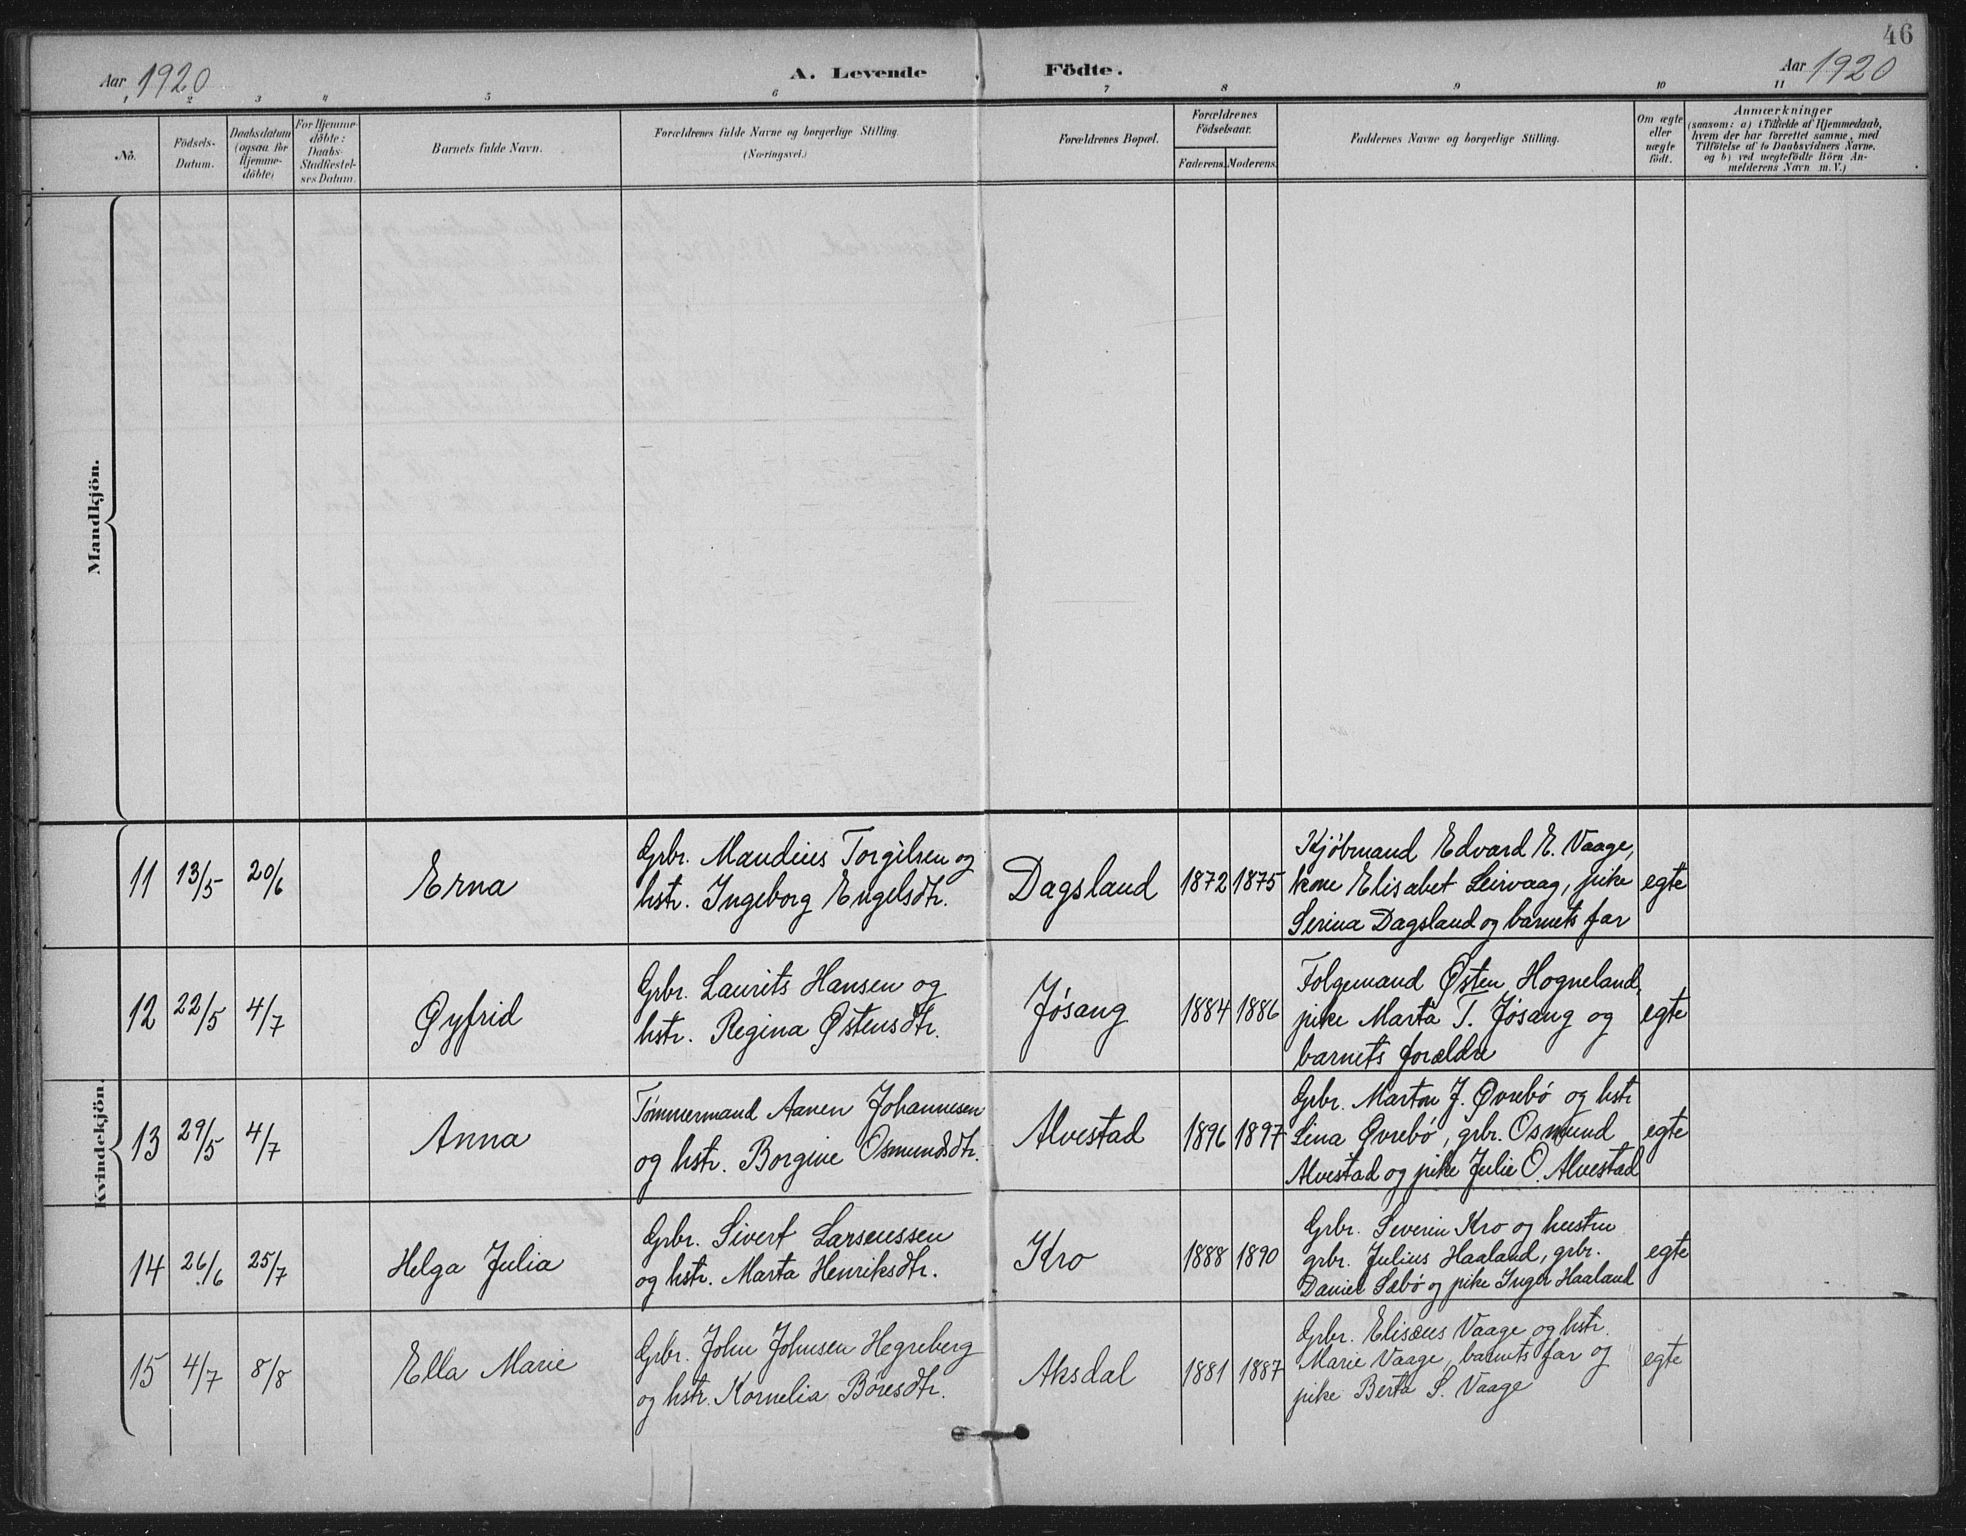 46
Aar 1920
A. Levende Födte.
Aar 1920
1 2 3 4 5 6 7 8 9 10 11
No.
Födsels-
Datum.
Daabsdatum
(ogsaa for
Hjemme-
döbte)
For Hjemme-
döbte:
Daabs-
Stadfestel-
ses Datum.
Barnets fulde Navn.
Forældrenes fulde Navne og borgerlige Stilling.
(Næringsvei.)
Forældrenes Bopæl.
Forældrenes
Födselsaar.
Faderens. Moderens.
Faddernes Navne og borgerlige Stilling.
Om ægte
eller
uægte
födt.
Anmærkninger
(saasom: a) i Tilfælde af Hjemmedaab,
hvem der har forrettet samme, med
Tilföielse af to Daabsvidners Navne.
og b) ved uægtefödte Börn An-
melderens Navn m. V.)
Mandkjön.
Kvindekjön.
11 13/5 20/6 Erna
Grbr. Maudius Torgilsen og
hstr. Ingeborg Engelsdtr.
Dagsland 1872 1875
Kjøbmand Edvard E. Vaage,
kone Elisabet Leirvaag, pike
Serina Dagsland og barnets far
egte
12 22/5 4/7 Øyfrid
Grbr. Laurits Hansen og
hstr. Regina Østensdtr.
Jøsang 1884 1886
Folgemand Østen Hogneland,
pike Marta T. Jøsang og
barnets forældre
egte
13 29/5 4/7 Anna
Tømmermand Aanen Johannesen
og hstr. Borgine Osmundsdtr.
Alvestad 1896 1897
Grbr. Marton J. Øvrebø og hstr
Lina Øvrebø, grbr. Osmund
Alvestad og pike Julie O. Alvestad
egte
14 26/6 25/7 Helga Julia
Grbr. Sivert Larsenssen
og hstr. Marta Henriksdtr.
Kro 1888 1890
Grbr. Severin Kro og hustru
grbr. Julius Haaland, grbr.
Daniel Sæbø og pike Inger Haaland
egte
15 4/7 8/8 Ella Marie
Grbr. John Johnsen Hegreberg
og hstr. Kornelia Børesdtr.
Aksdal 1881 1887
Grbr. Elisæus Vaage og hstr.
Marie Vaage, barnets far og
pike Berta S. Vaage
egte